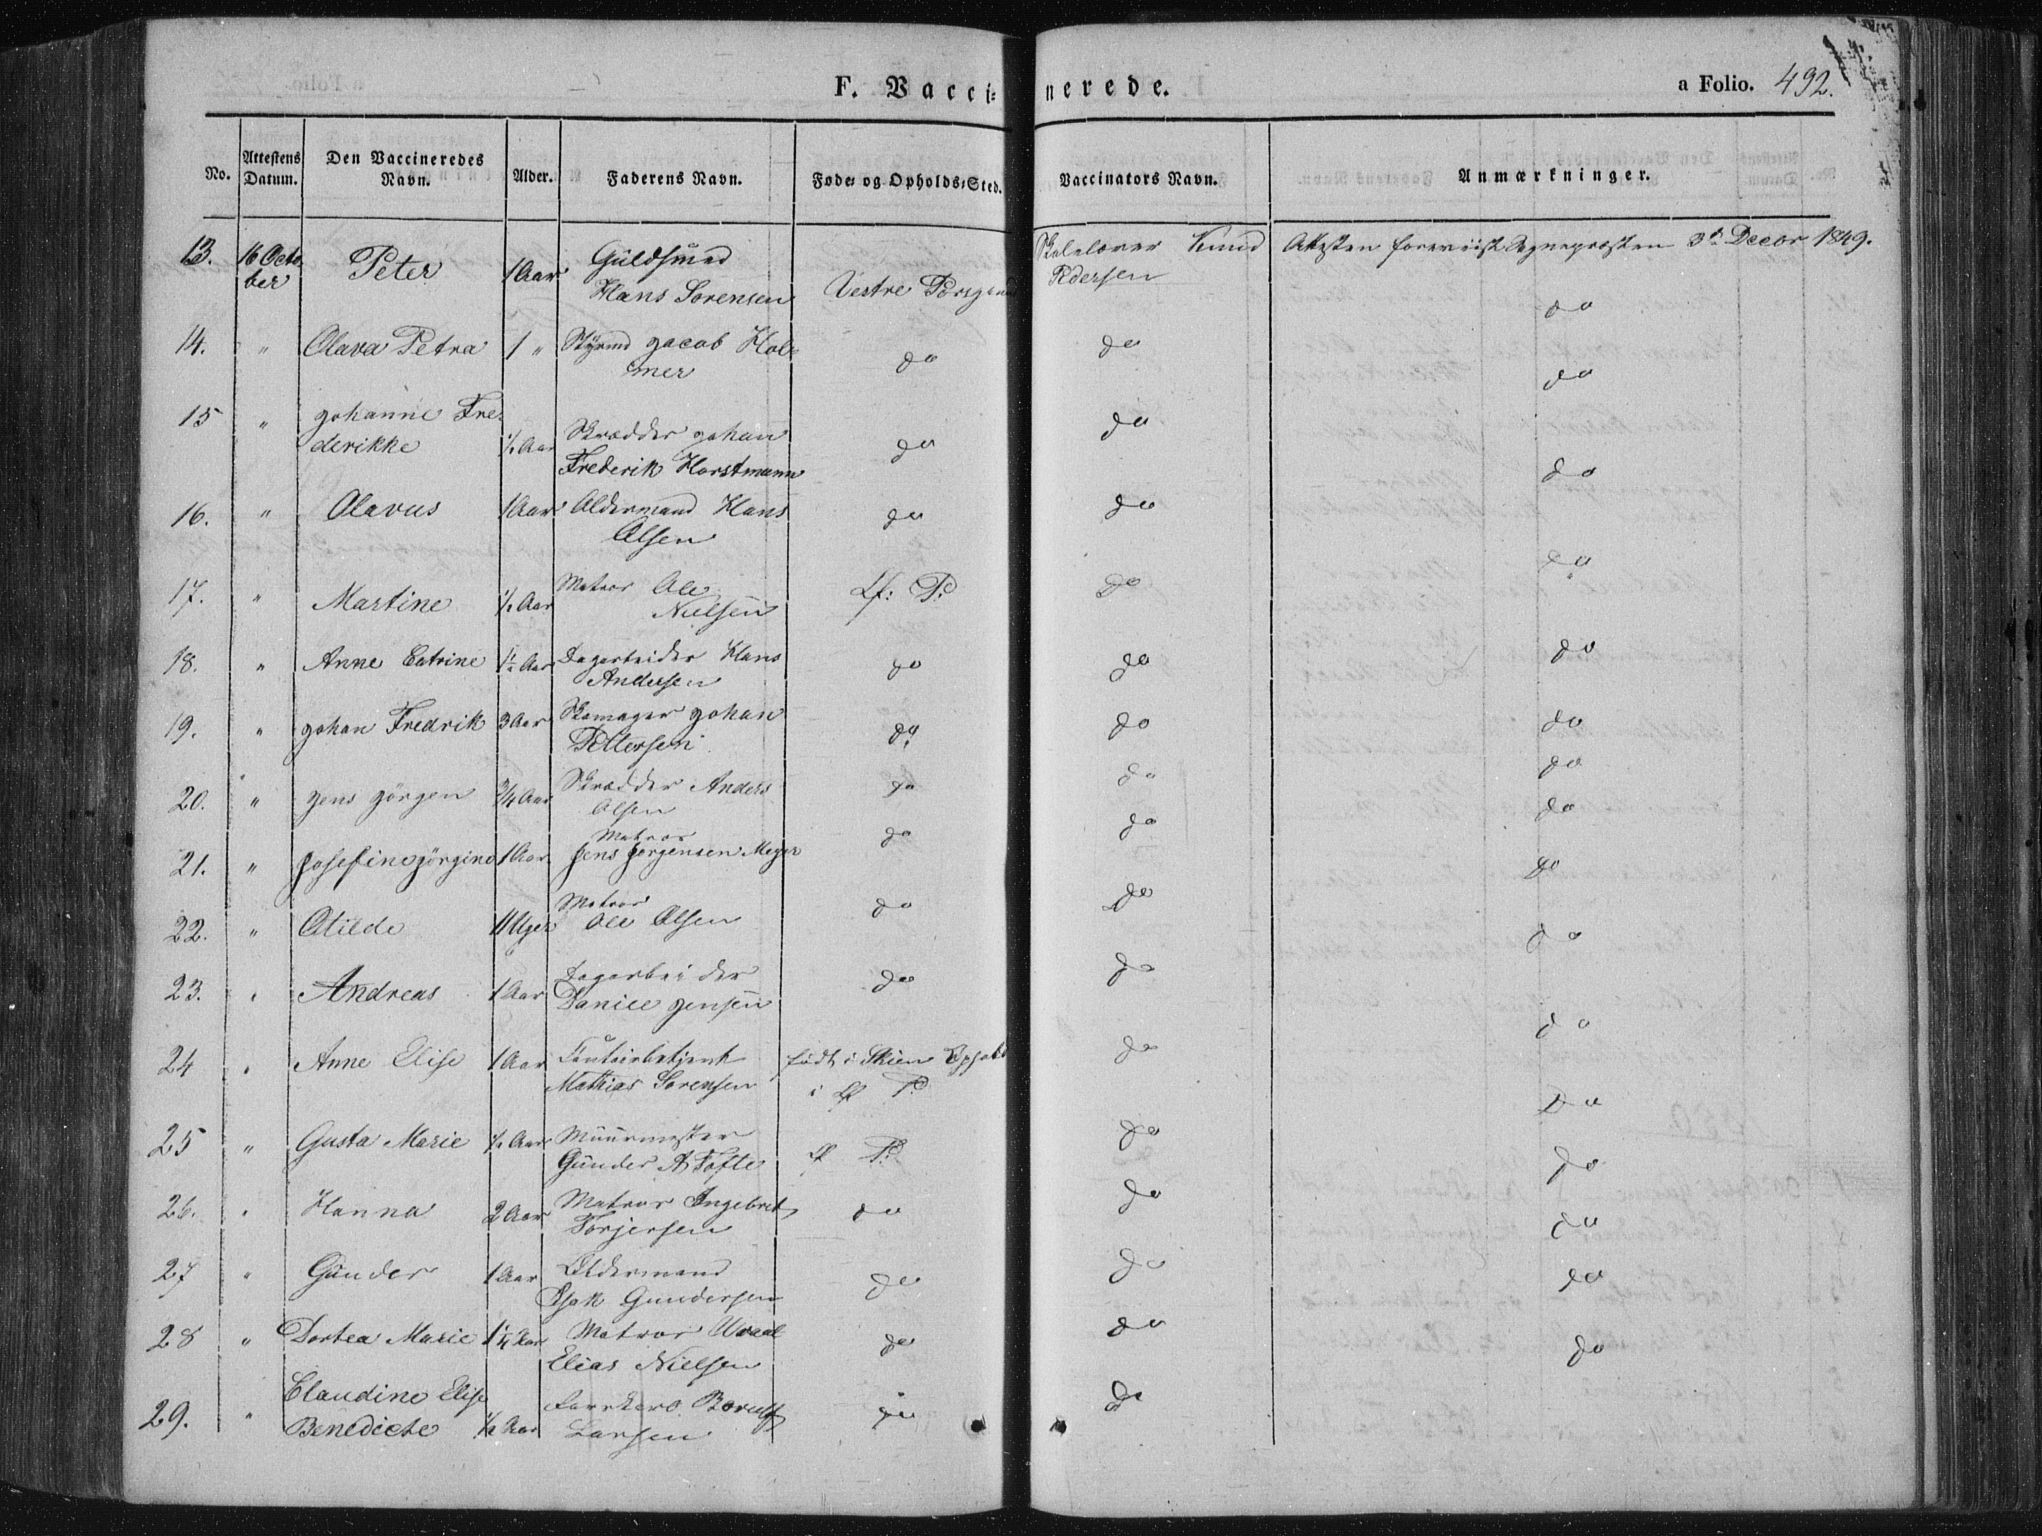 F. Vacci=
nerede.
a Folio. 492.
No.
Attestens Datum.
Den Vaccineredes Navn.
Alder.
Faderens Navn.
Føde= og Opholds=Sted.
Vaccinators Navn.
Anmærkninger.
13. 16 Octo Peter 1 Aar Guldsmed Skolelærer Knud Attesten foreviist Sognepræsten 3d Decbr 1849.
ber Hans Sorensen Vestre Porsgrund Pedersen
do
14. " Olava Petra 1 " Styrmd Jacob Hol= do do
mer
do
15 " Johanne Fre= do
derikke 1/2 Aar Skrædder Johan do
Frederik Horstmann do
16. " Olavus 1 Aar Oldermand Hans do do
Olsen
do
17. " Martine 1/2 Aar Matros Ole Lf: P: do
Nielsen
18. " Anne Catrine 1 1/2 Aar Dagarbeider Hans do do do
Andersen
19. " Johan Fredrik 3 Aar Skomager Johan do do do
Pettersen
20. " Jens Jörgen 3/4 Aar Skrædder Anders do do do
Olsen
21. " Josefine Jörgine 1 Aar Matros do do do
Jens Jorgensen Meyer
22. " Otilde 11 Uger Matros do do do
Ole Olsen
23. " Andreas 1 Aar Dagarbeider do do do
Daniel Jensen
24 " Anne Elise 1 Aar født i Skien do do
Mathias Sorensen i Lf P:
25 " Gusta Marie 1/2 Aar Muurmester Lf P: do do
Gunder A Tofte
26. " Hanna 2 Aar Matros Ingebret do do do
Torjersen
27 " Gunder 1 Aar Oldermand do do do
Isak Gundersen
28 " Dortea Marie 1 1/4 Aar Matros do do do
Elias Nielsen
29. " Claudine Elise do do do
Benedicte 1/2 Aar Larsen